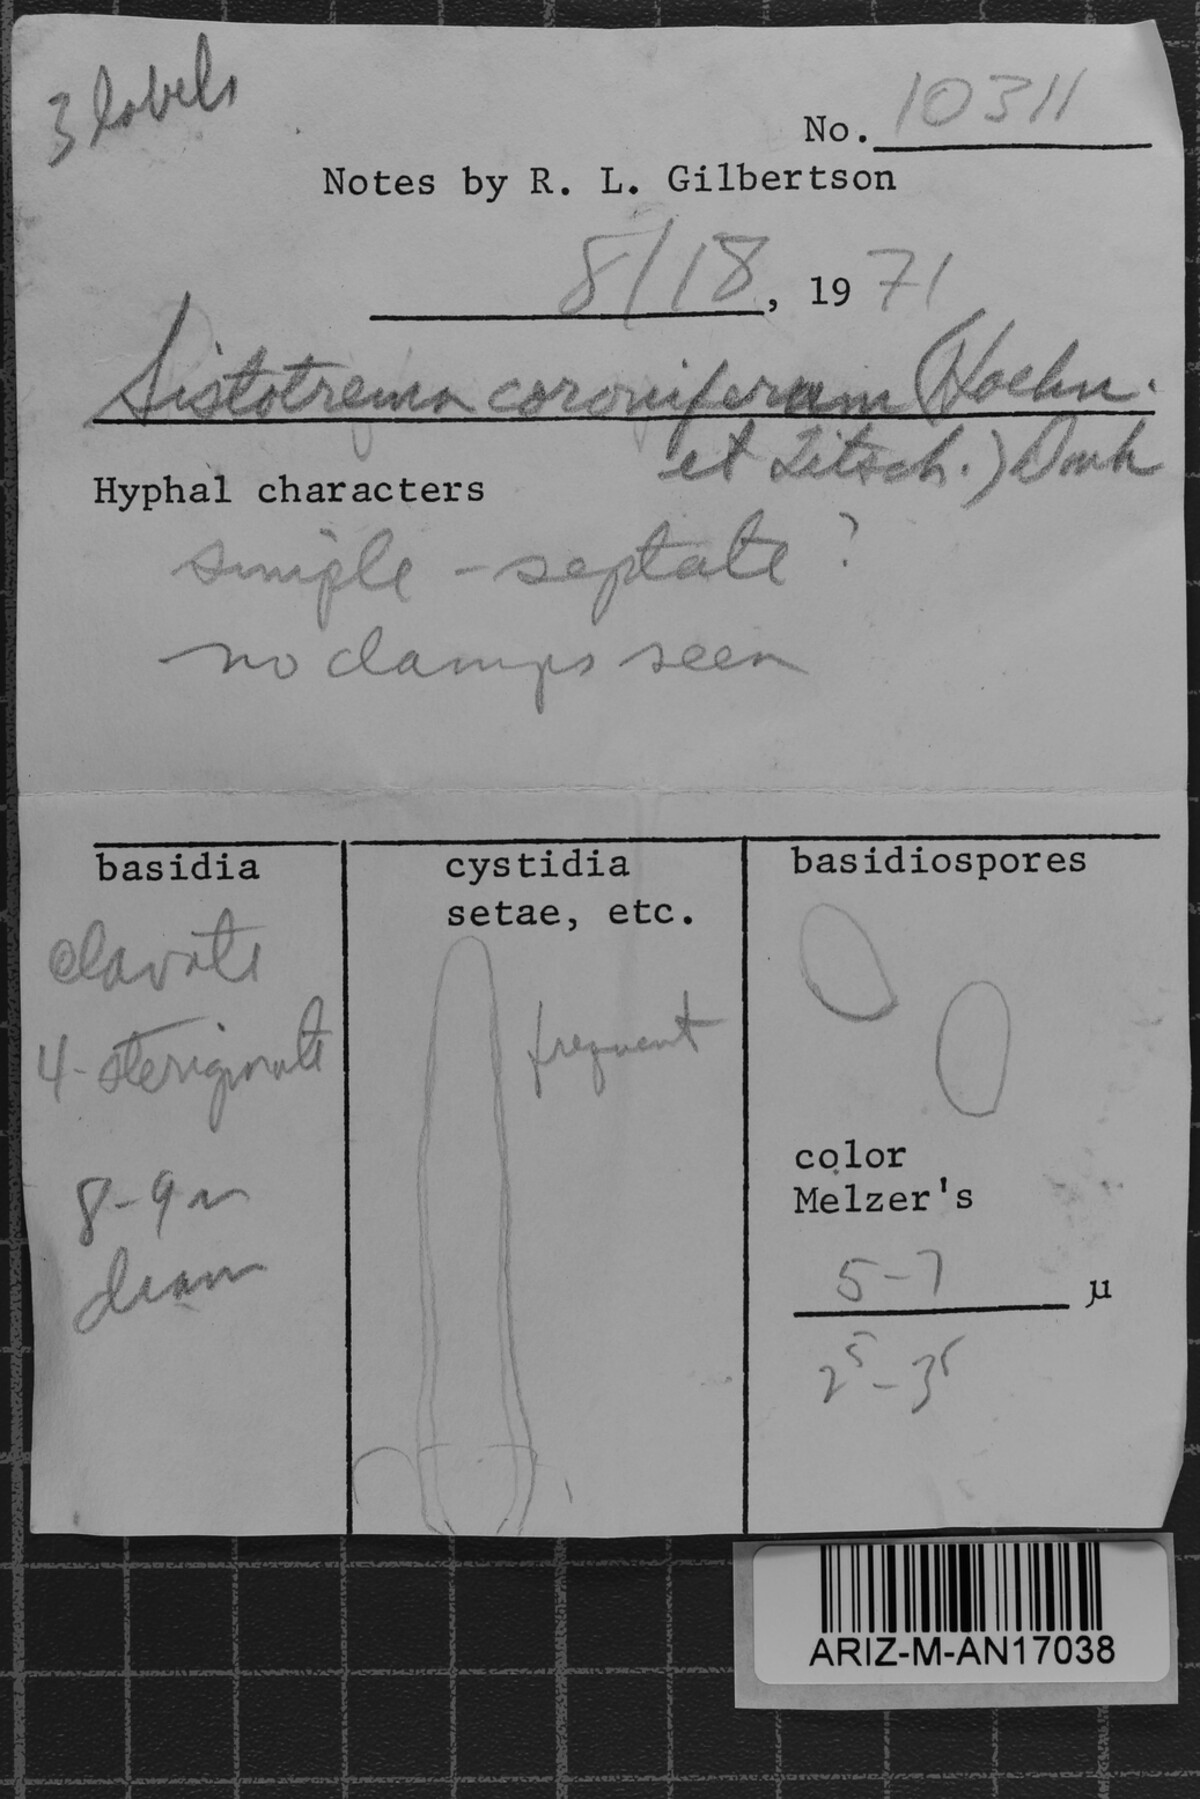 3 labels
No. 10311
Notes by R. L. Gilbertson
8/18, 1971
Sistotrema coroniferum (Hoehn.
et Litsch.) Donk
Hyphal characters
simple - septate ?
no clamps seen
basidia
clavate
4-sterigmate
8-9 μ
diam
cystidia
setae, etc.
frequent
basidiospores
color
Melzer's
5-7 μ
2⁵-3⁵
ARIZ-M-AN17038